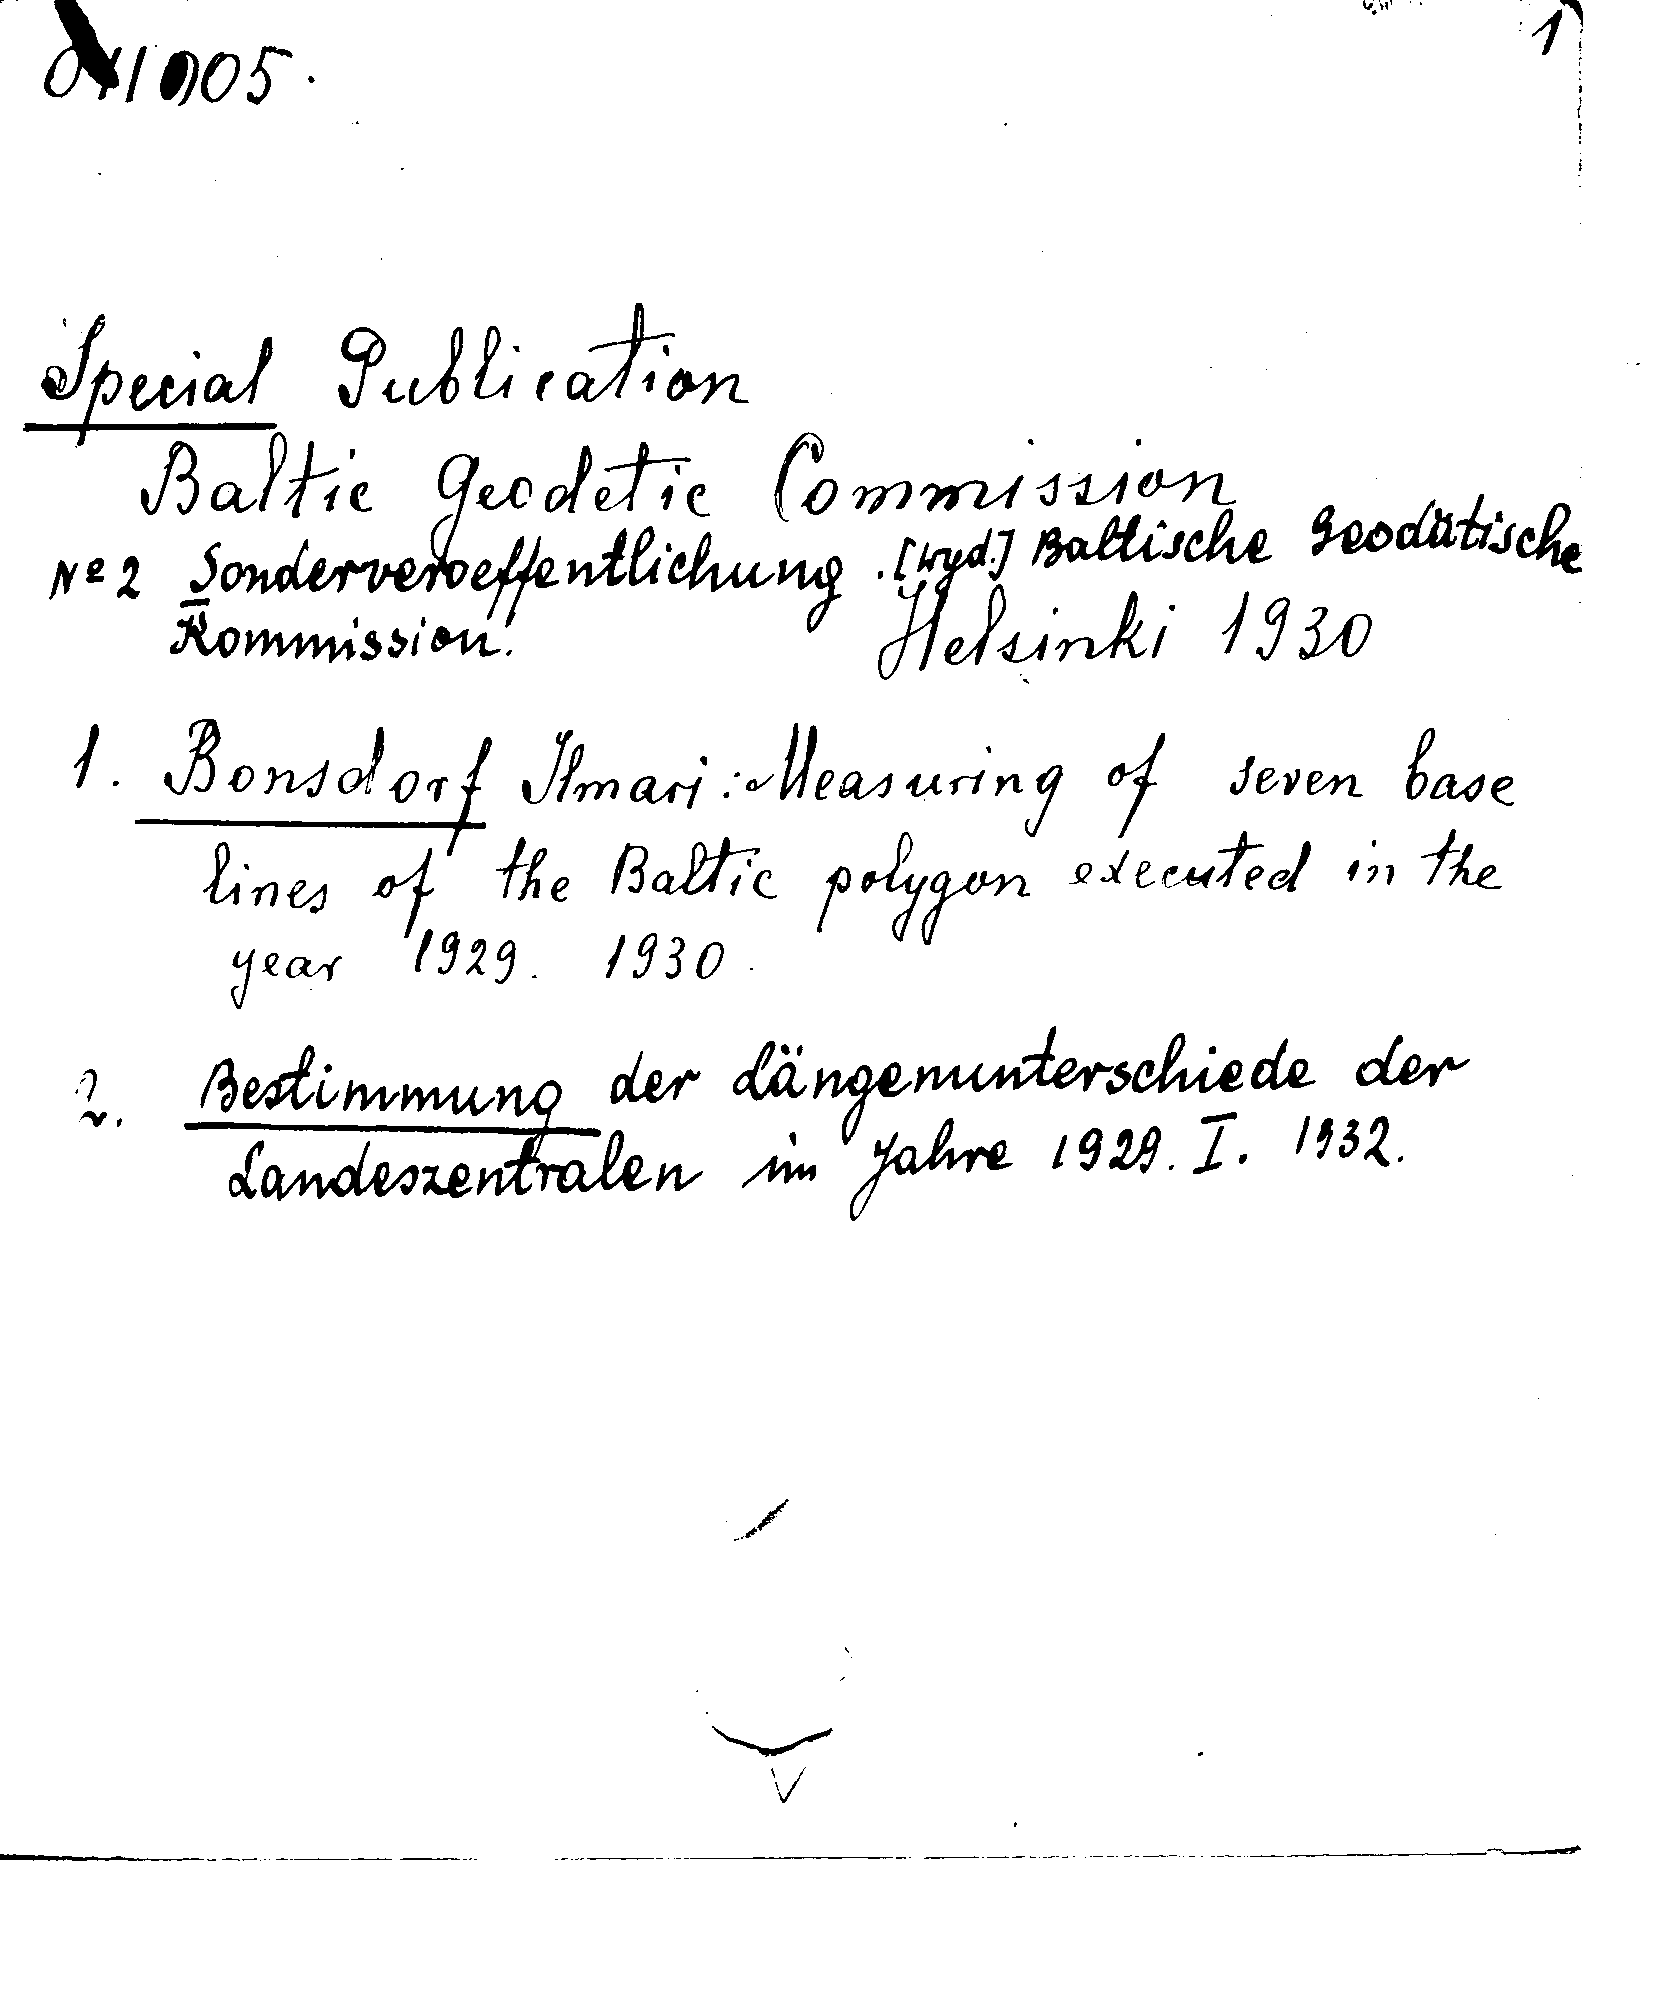 1
Special Publication
Baltic Geodetic Commission
№ 2 Sonderveroeffentlichung. [wyd.] Baltische Geodätische
Kommission.
Helsinki 1930
1. Bonsdorf Ilmari: Measuring of seven base
lines of the Baltic polygon executed in the
year 1929. 1930.
2. Bestimmung der Längenunterschiede der
Landeszentralen im Jahre 1929. I. 1932.